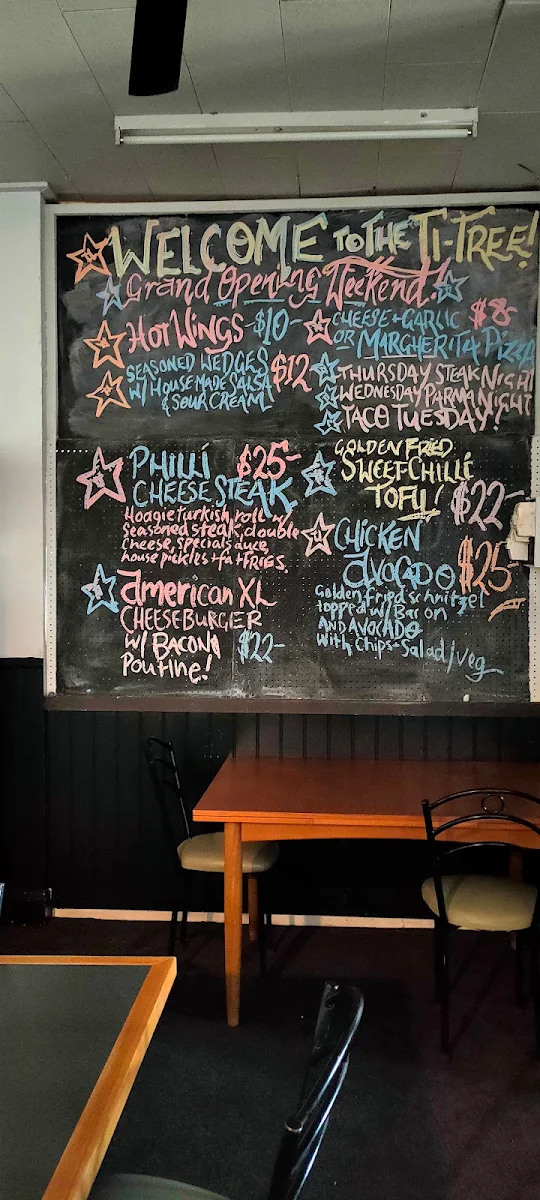 WELCOME TO THE TI-TREE!
Grand Opening Weekend!
HOT WINGS -$10-
SEASONED WEDGES $12
W/ HOUSE MADE SALSA
& SOUR CREAM
CHEESE + GARLIC $8-
OR MARGHERITA PIZZA
THURSDAY STEAK NIGHT
WEDNESDAY PARMA NIGHT
TACO TUESDAY!
PHILLI $25-
CHEESE STEAK
Hoagie turkish roll w/
seasoned steak, double
cheese, special sauce,
house pickles + FRIES.
american XL
CHEESEBURGER
W/ BACON $22-
Poutine!
GOLDEN FRIED
SWEET-CHILLI
TOFU! $22-
CHICKEN
aVOCADO $25-
Golden fried schnitzel
topped w/ Bacon
AND AVOCADO
with Chips + Salad/veg